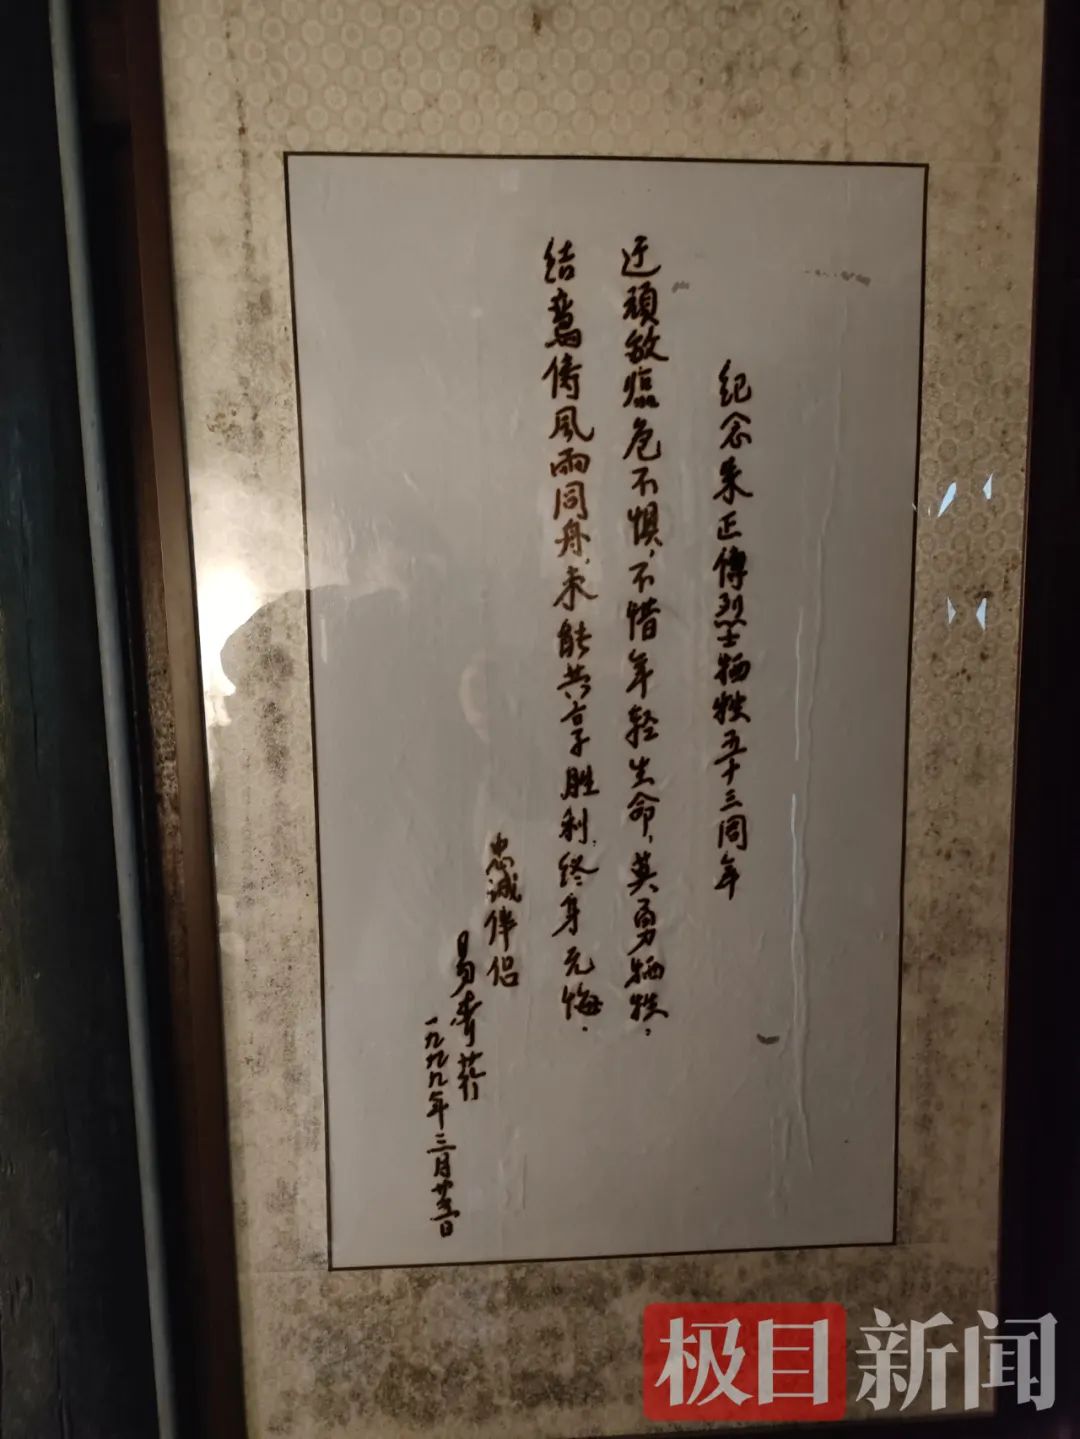 纪念朱正傳烈士牺牲五十三周年
迂頑敌临危不惧，不惜年轻生命，英勇牺牲，
结鸾俦风雨同舟，未能共享胜利，终身无悔．
忠诚伴侣
易香荪
一九九九年三月廿三日
极目新闻